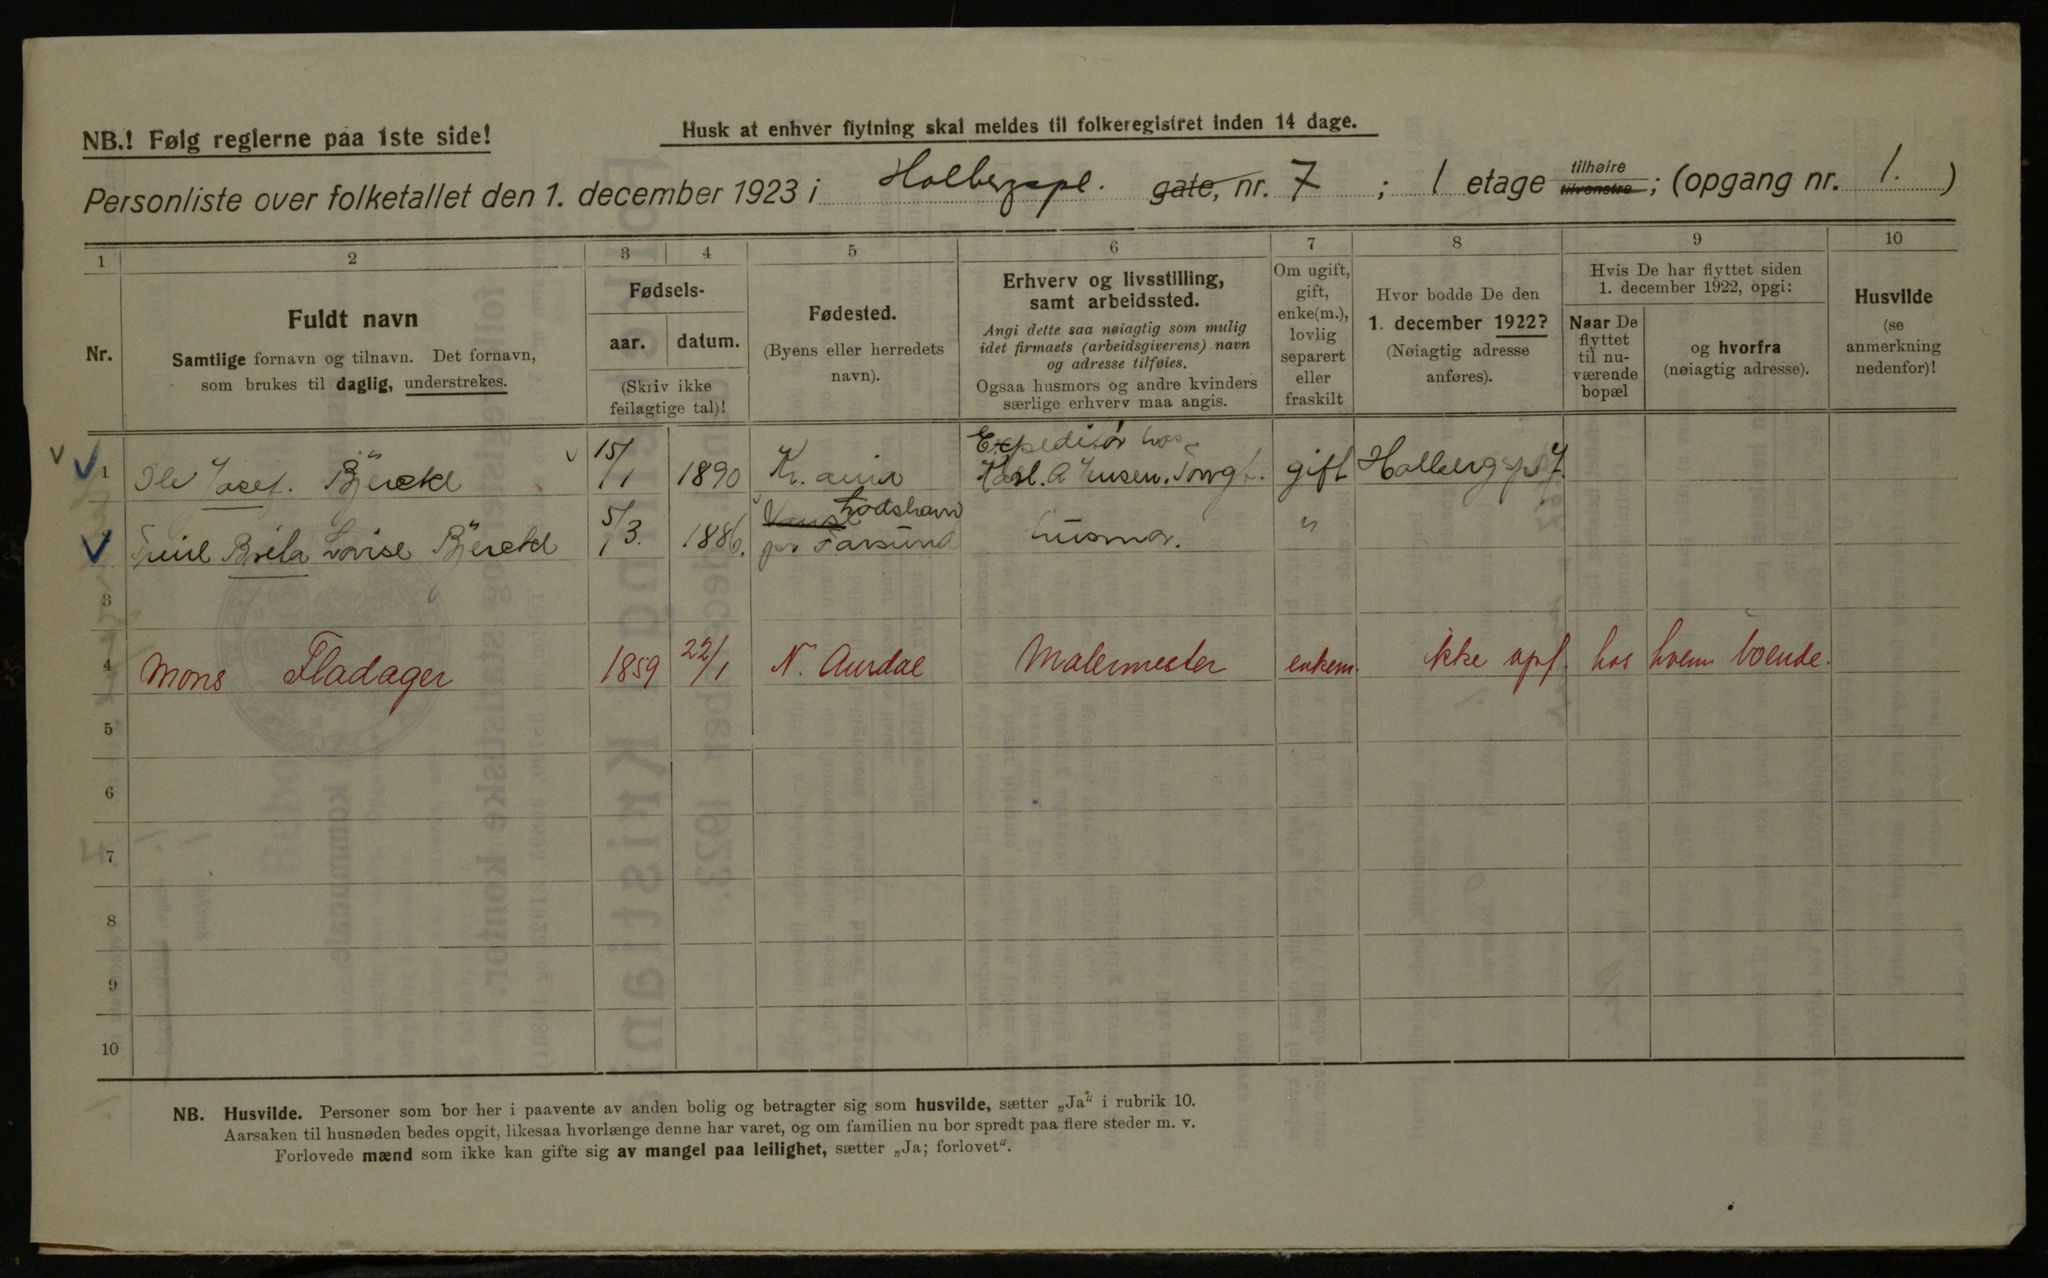 NB.! Følg reglerne paa 1ste side!
Husk at enhver flytning skal meldes til folkeregistret inden 14 dage.
Personliste over folketallet den 1. december 1923 i Holbergspl. gate, nr. 7 ; 1 etage tilhøire tilvenstre ; (opgang nr. 1. )
1 2 3 4 5 6 7 8 9 10
Nr.
Fuldt navn
Samtlige fornavn og tilnavn. Det fornavn,
som brukes til daglig, understrekes.
Fødsels-
aar. datum.
(Skriv ikke
feilagtige tal)!
Fødested.
(Byens eller herredets
navn).
Erhverv og livsstilling,
samt arbeidssted.
Angi dette saa nøiagtig som mulig
idet firmaets (arbeidsgiverens) navn
og adresse tilføies.
Ogsaa husmors og andre kvinders
særlige erhverv maa angis.
Om ugift,
gift,
enke(m.),
lovlig
separert
eller
fraskilt
Hvor bodde De den
1. december 1922?
(Nøiagtig adresse
anføres).
Hvis De har flyttet siden
1. december 1922, opgi:
Naar De
flyttet
til nu-
værende
bopæl
og hvorfra
(nøiagtig adresse).
Husvilde
(se
anmerkning
nedenfor)!
1 Ole Josef. Bjercke 15/1 1890 Kr.ania Expeditør hos
Karl. A Torvgt. gift Holbergspl 7
Brita Lovise Bjercke 5/3. 1886. Lodshavn
pr Farsund husmor. "
3
4 Mons Fladager 1859 22/1 N. Aurdal Malermester enkem. ikke opf. hos hvem boende.
5
6
7
8
9
10
NB. Husvilde. Personer som bor her i paavente av anden bolig og betragter sig som husvilde, sætter „Ja“ i rubrik 10.
Aarsaken til husnøden bedes opgit, likesaa hvorlænge denne har varet, og om familien nu bor spredt paa flere steder m. v.
Forlovede mænd som ikke kan gifte sig av mangel paa leilighet, sætter „Ja; forlovet“.